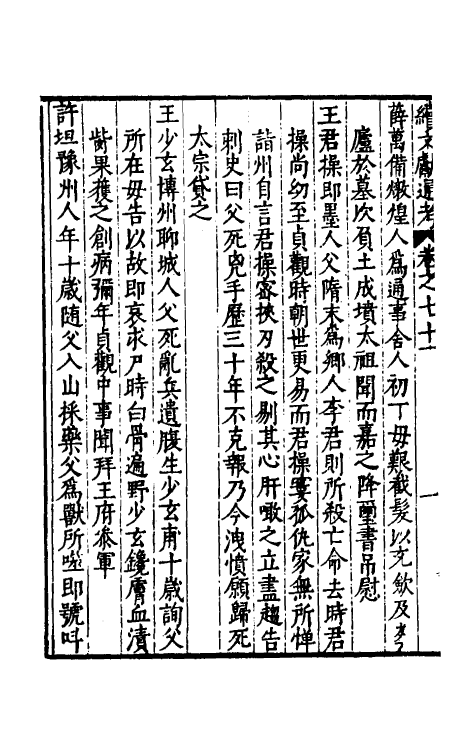 續文獻通考 卷之七十一 一
薛萬備燉煌人爲通事舍人初丁母艱截髮以充斂及
廬於墓次負土成墳太祖聞而嘉之降璽書吊慰
王君操即墨人父隋末爲鄉人李君則所殺亡命去時君
操尚幼至貞觀時朝世更易而君操寠孤仇家無所憚
詣州自言君操密挾刃殺之剔其心肝噉之立盡趨告
刺史曰父死兇手歷三十年不克報乃今洩憤願歸死
太宗貸之
王少玄博州聊城人父死亂兵遺腹生少玄甫十歲詢父
所在母告以故即哀求尸時白骨遍野少玄鑱膚血漬
胔果獲之創病彌年貞觀中事聞拜王府叅軍
許坦豫州人年十歲随父入山採藥父爲獸所噬即號叫